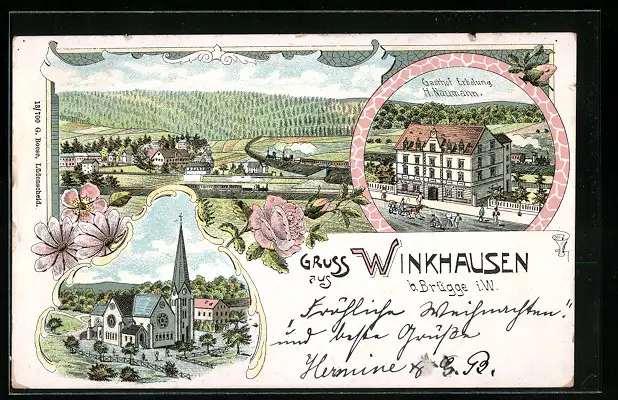 15/700 G. Boese, Lüdenscheid.
Gasthof Erholung
H. Naumann.
GRUSS
aus
WINKHAUSEN
b. Brügge i. W.
"Fröhliche Weihnachten"
und beste Grüße
Hermine & G. B.